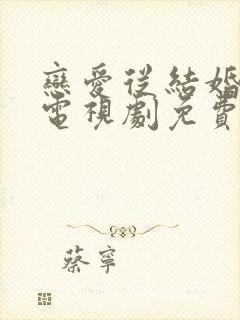 戀愛從結婚
電視劇免費
蔡寧